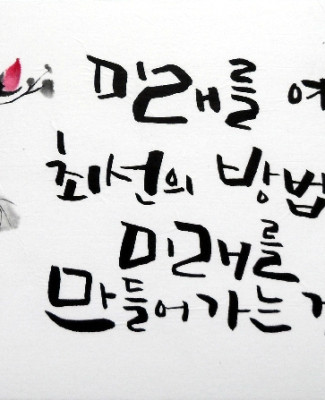 미래를 예
최선의 방법
미래를
만들어가는 거